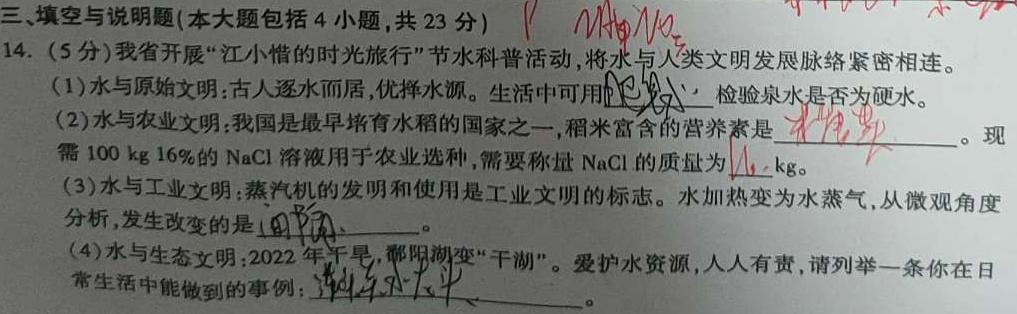 三、填空与说明题(本大题包括4小题,共23分)
14.(5分)我省开展“江小惜的时光旅行”节水科普活动,将水与人类文明发展脉络紧密相连。
(1)水与原始文明:古人逐水而居,优择水源。生活中可用肥皂水检验泉水是否为硬水。
(2)水与农业文明:我国是最早培育水稻的国家之一,稻米富含的营养素是______。现
需100 kg 16%的NaCl溶液用于农业选种,需要称量NaCl的质量为____kg。
(3)水与工业文明:蒸汽机的发明和使用是工业文明的标志。水加热变为水蒸气,从微观角度
分析,发生改变的是______。
(4)水与生态文明:2022年干旱,鄱阳湖变“干湖”。爱护水资源,人人有责,请列举一条你在日
常生活中能做到的事例:______。